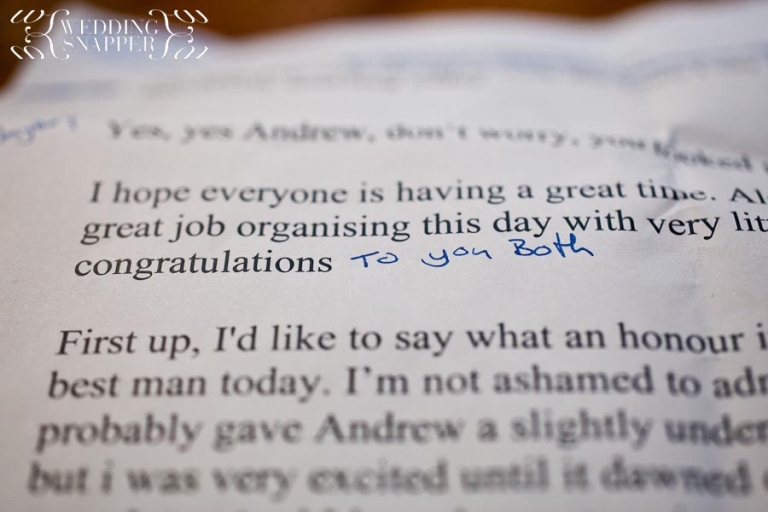 WEDDING
SNAPPER
Yes, yes Andrew, don't worry, you looked
I hope everyone is having a great time. Al
great job organising this day with very lit
congratulations To you Both
First up, I'd like to say what an honour i
best man today. I'm not ashamed to adm
probably gave Andrew a slightly under
but i was very excited until it dawned